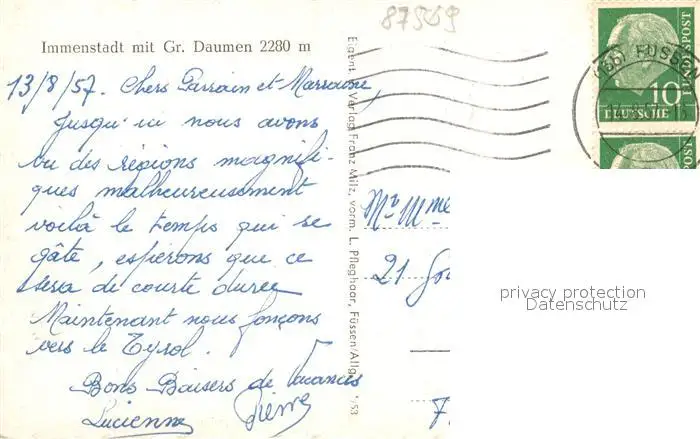 87569
Immenstadt mit Gr. Daumen 2280 m
13/8/57. Chers Parrain et Marraine,
Jusqu'ici nous avons
vu des régions magnifi-
ques malheureusement
voilà le temps qui se
gâte, espierons que ce
sera de courte durée
Maintenant nous fonçons
vers le Tyrol.
Bons Baisers de Vacances
Lucienne Pierre
Verlag Franz Milz, vorm. L. Pfleghaar, Füssen/Allg.
/53
FÜSSE
10
DEUTSCHE
POST
POST
Mr Mme
21
privacy protection
Datenschutz